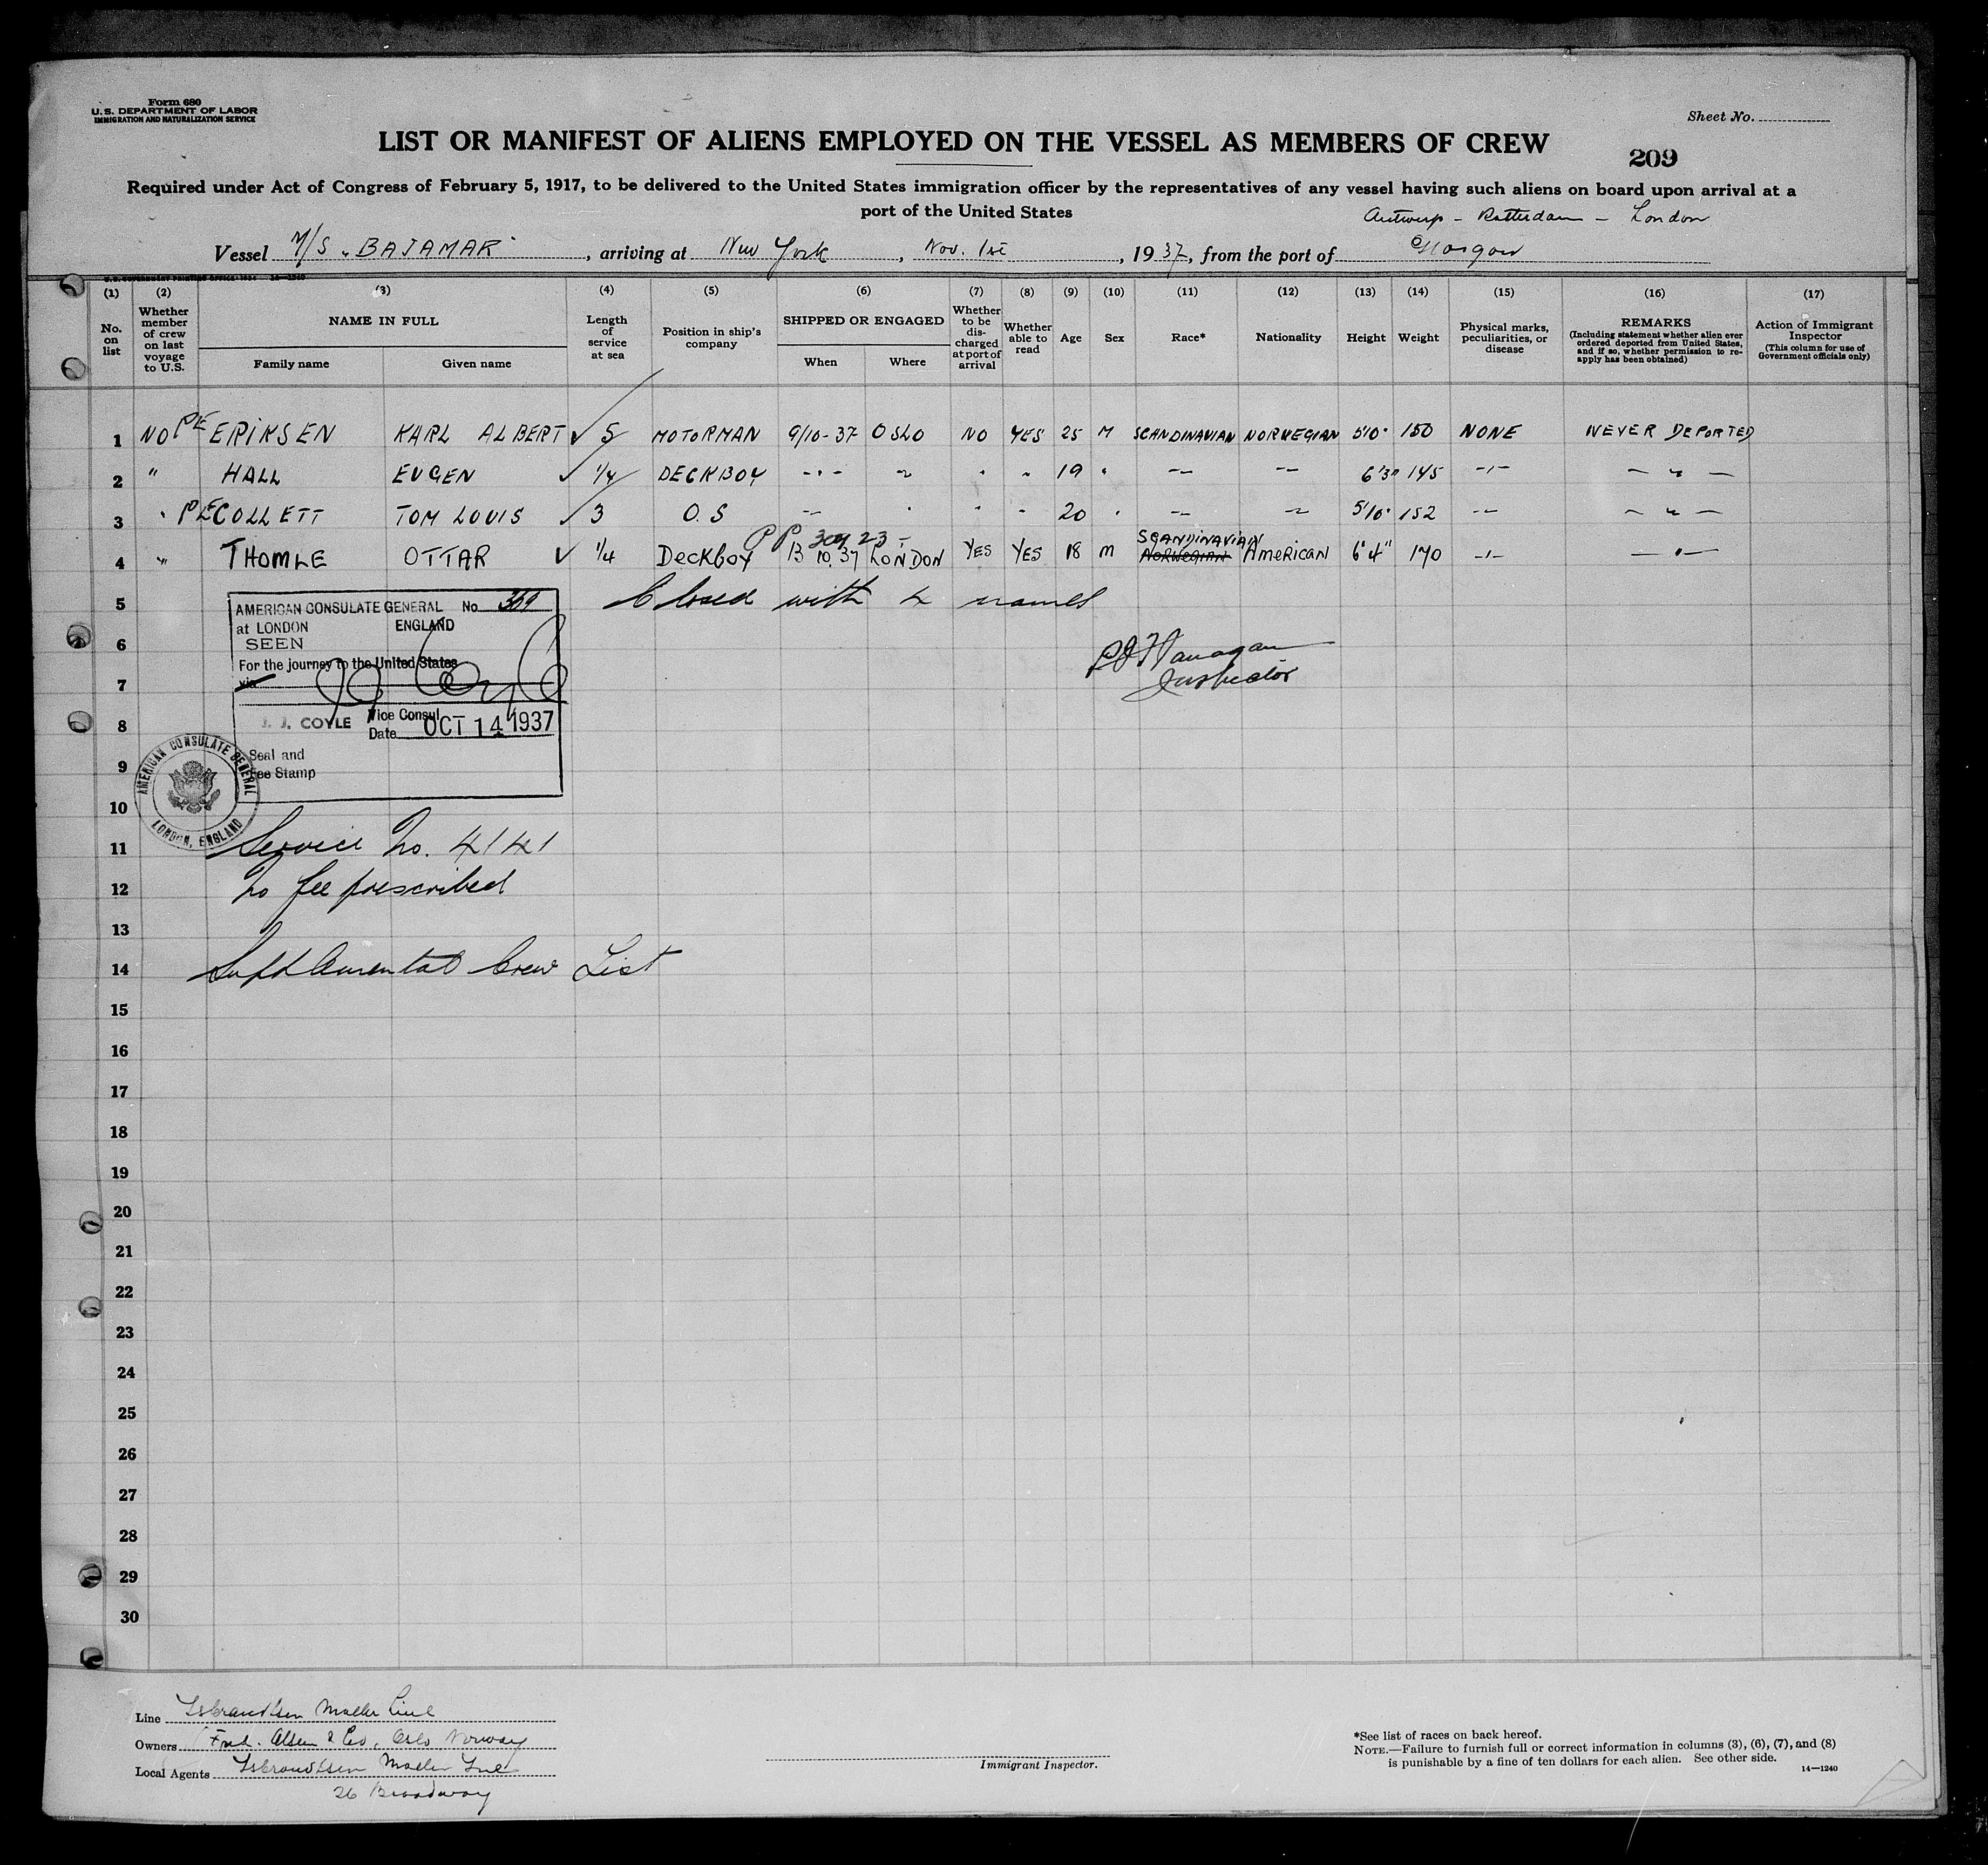 Form 680
U. S. DEPARTMENT OF LABOR
IMMIGRATION AND NATURALIZATION SERVICE
Sheet No.
LIST OR MANIFEST OF ALIENS EMPLOYED ON THE VESSEL AS MEMBERS OF CREW
209
Required under Act of Congress of February 5, 1917, to be delivered to the United States immigration officer by the representatives of any vessel having such aliens on board upon arrival at a
port of the United States
Antwerp - Rotterdam - London
Vessel M/S "BAJAMAR", arriving at New York, Nov. 1st, 1937, from the port of Glasgow
(1) (2) (3) (4) (5) (6) (7) (8) (9) (10) (11) (12) (13) (14) (15) (16) (17)
No. on list
Whether member of crew on last voyage to U.S.
NAME IN FULL
Family name
Given name
Length of service at sea
Position in ship's company
SHIPPED OR ENGAGED
When
Where
Whether to be discharged at port of arrival
Whether able to read
Age
Sex
Race*
Nationality
Height
Weight
Physical marks, peculiarities, or disease
REMARKS
(Including statement whether alien ever ordered deported from United States, and if so, whether permission to re-apply has been obtained)
Action of Immigrant Inspector
(This column for use of Government officials only)
1 NO PE ERIKSEN KARL ALBERT ✓ 5 MOTORMAN 9/10-37 OSLO NO YES 25 M SCANDINAVIAN NORWEGIAN 5'10" 150 NONE NEVER DEPORTED
2 " HALL EUGEN ✓ 1/4 DECKBOY -"- " " " 19 " -"- -"- 6'3" 145 -"- - " -
3 " PE COLLETT TOM LOUIS ✓ 3 O.S -"- " " " 20 " -"- " 5'10" 152 -"- - " -
PP 309 23 - SCANDINAVIAN
4 " THOMLE OTTAR ✓ 1/4 DeckBoy 13 10.37 LONDON YES YES 18 M NORWEGIAN AMERICAN 6'4" 170 -"- - " -
5 Closed with 4 names
6
7
8
9
10
11
12
13
14
15
16
17
18
19
20
21
22
23
24
25
26
27
28
29
30
AMERICAN CONSULATE GENERAL No. 369
at LONDON ENGLAND
SEEN
For the journey to the United States
via
J. J. COYLE Vice Consul
Date OCT 14 1937
Seal and
Fee Stamp
AMERICAN CONSULATE GENERAL
LONDON, ENGLAND
Flanagan
Inspector
Service No. 4141
No fee prescribed
Supplemental Crew List
Line Isbrandtsen Moller Line
Owners Fred. Olsen & Co, Oslo Norway
Local Agents Isbrandtsen Moller Inc
26 Broadway
Immigrant Inspector.
*See list of races on back hereof.
NOTE.—Failure to furnish full or correct information in columns (3), (6), (7), and (8)
is punishable by a fine of ten dollars for each alien. See other side.
14—1240